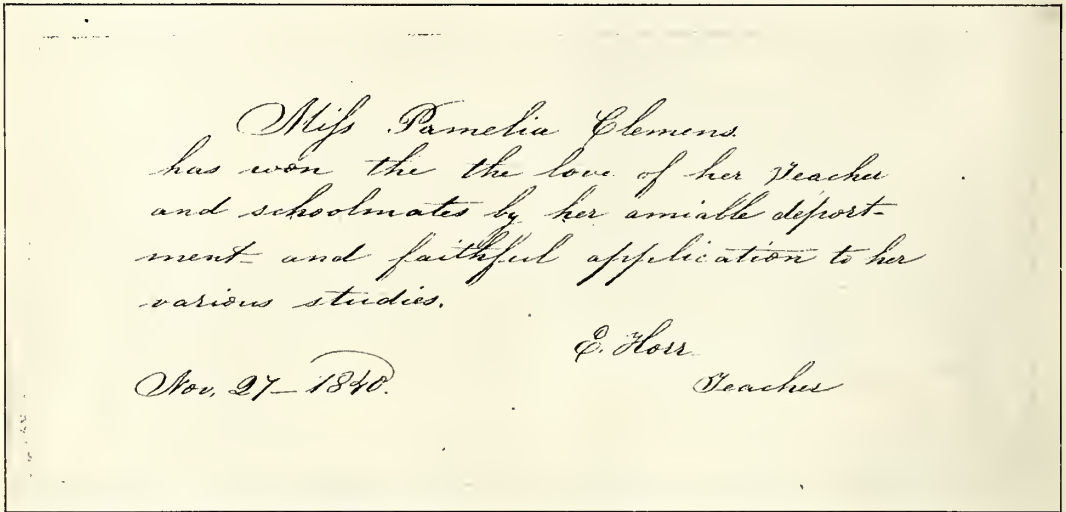 Miſs Pamelia Clemens
has won the the love of her Teacher
and schoolmates by her amiable deport-
ment and faithful application to her
various studies.
E. Horr
Teacher
Nov. 27 – 1840.